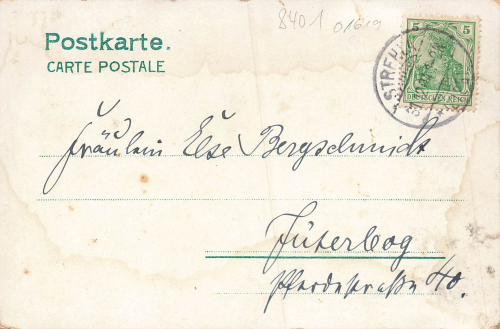 8401 01619
Postkarte.
CARTE POSTALE
5 5
DEUTSCHES REICH
Fräulein Else Bergschmidt
Jüterbog
Pferdestraße 40.